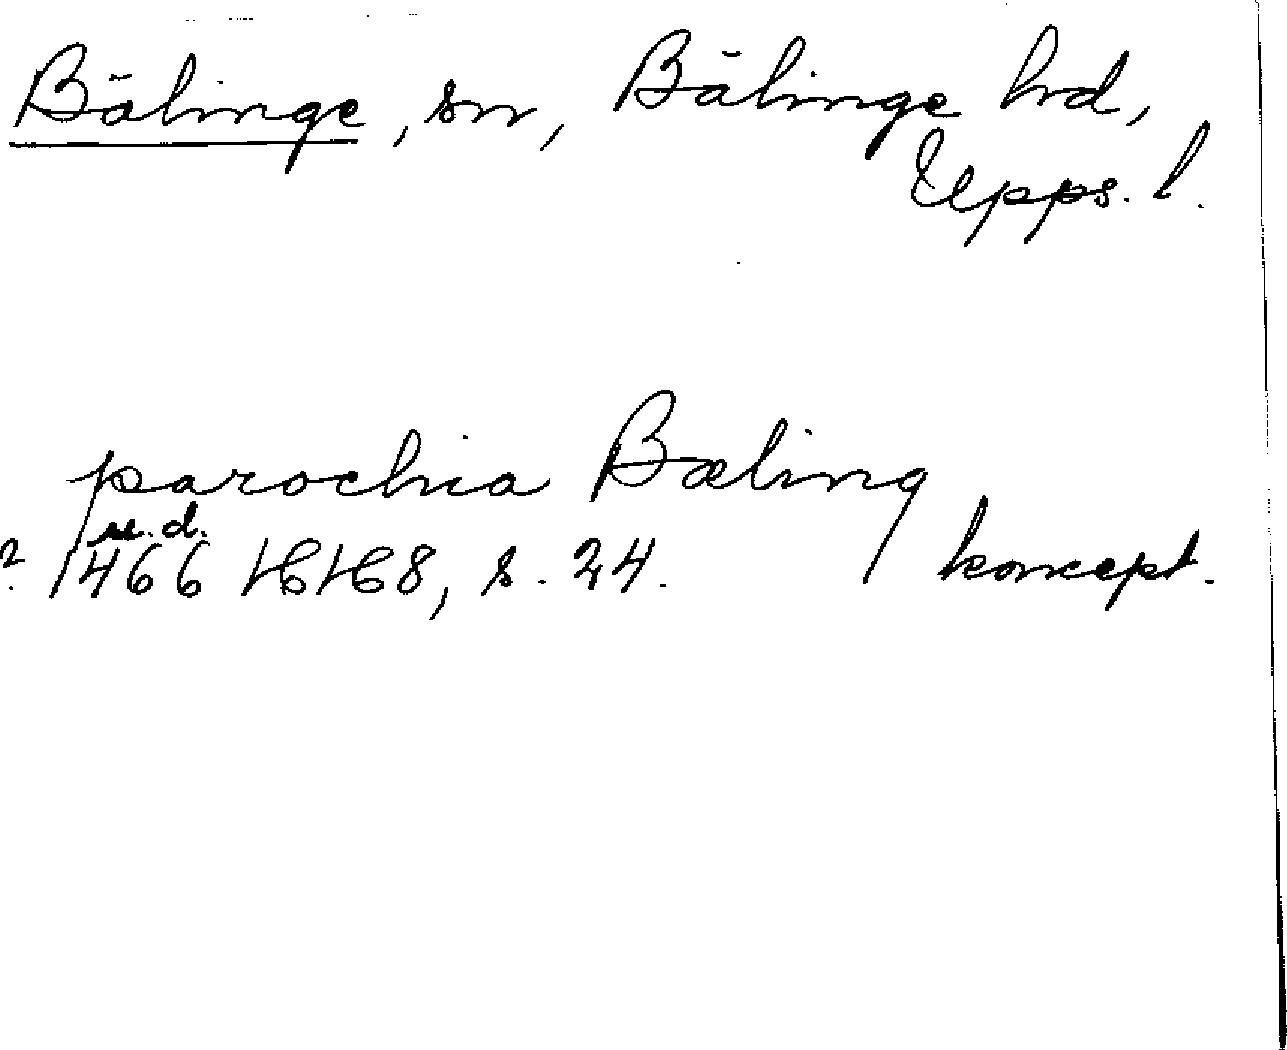 Bälinge, sn, Bälinge hd,
Upps. l.
parochia Bæling
u. d.
? 1466 16168, s. 24. koncept.